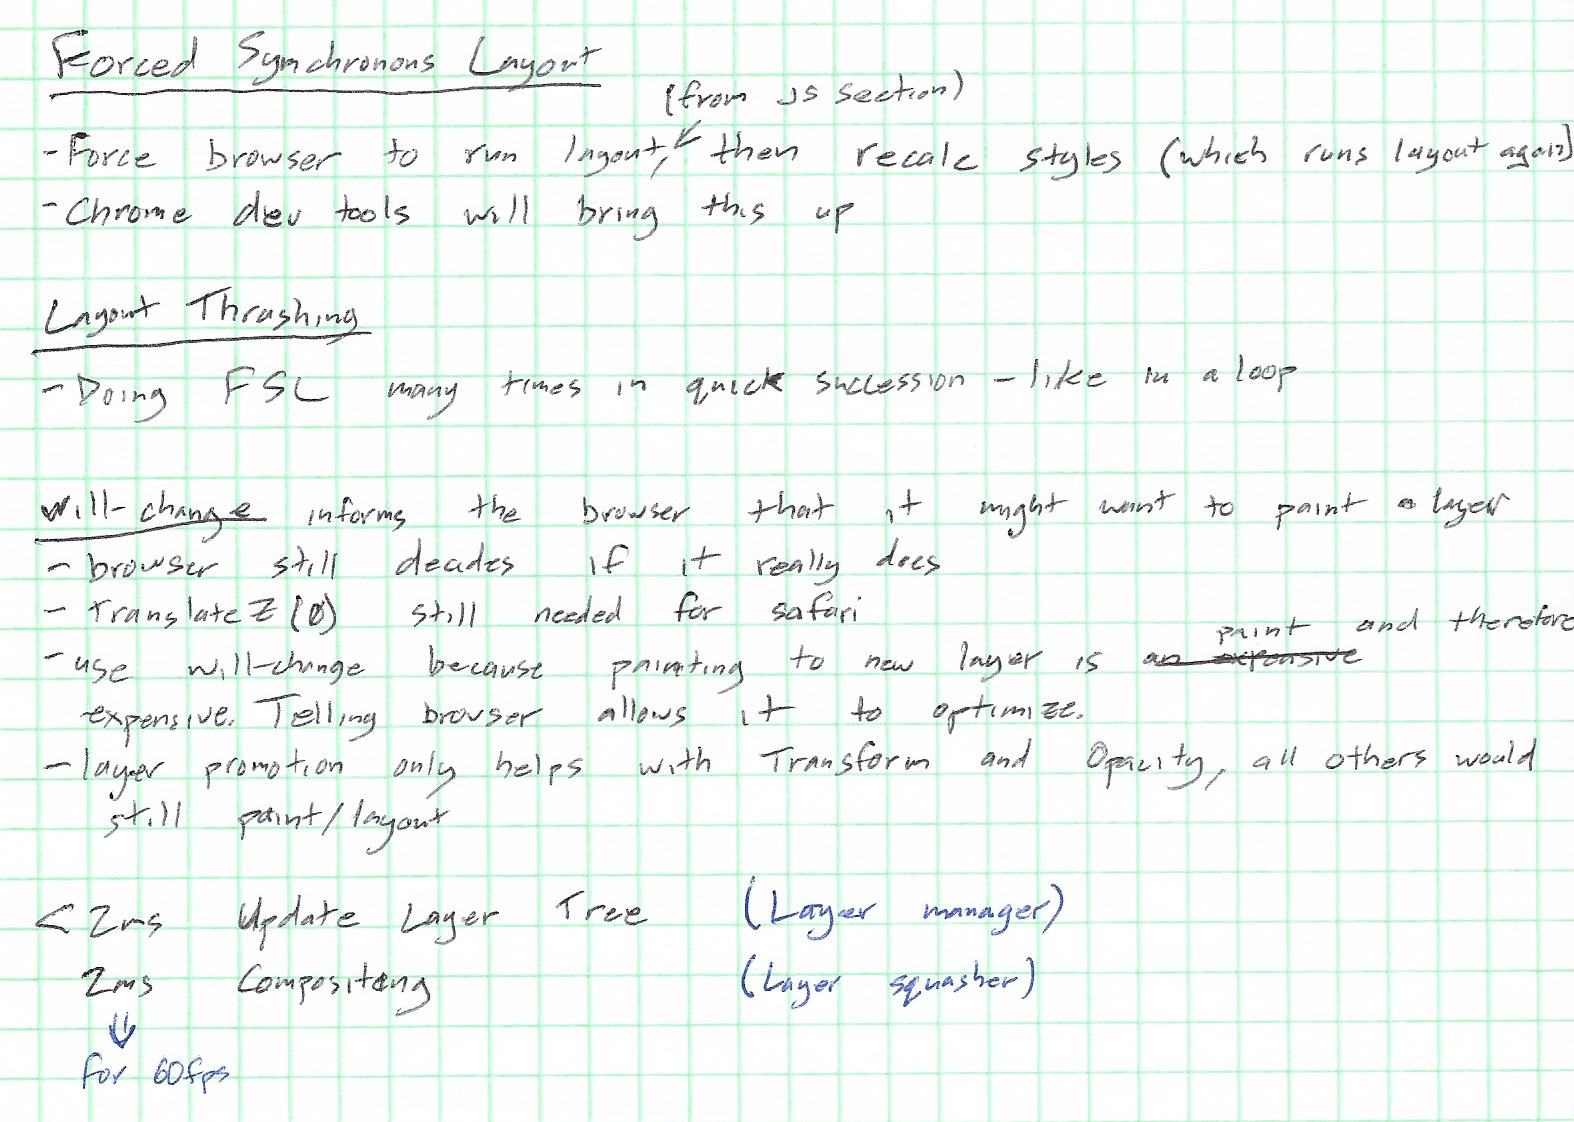 Forced Synchronous Layout
(from JS section)
- Force browser to run layout, then recalc styles (which runs layout again)
- Chrome dev tools will bring this up
Layout Thrashing
- Doing FSL many times in quick succession - like in a loop
will-change informs the browser that it might want to paint a layer
- browser still decides if it really does
- translateZ(0) still needed for safari
paint and therefore
- use will-change because painting to new layer is an expensive
expensive. Telling browser allows it to optimize.
- layer promotion only helps with Transform and Opacity, all others would
still paint/layout
< 2ms Update Layer Tree (Layer manager)
2ms Compositing (Layer squasher)
⇓
for 60fps